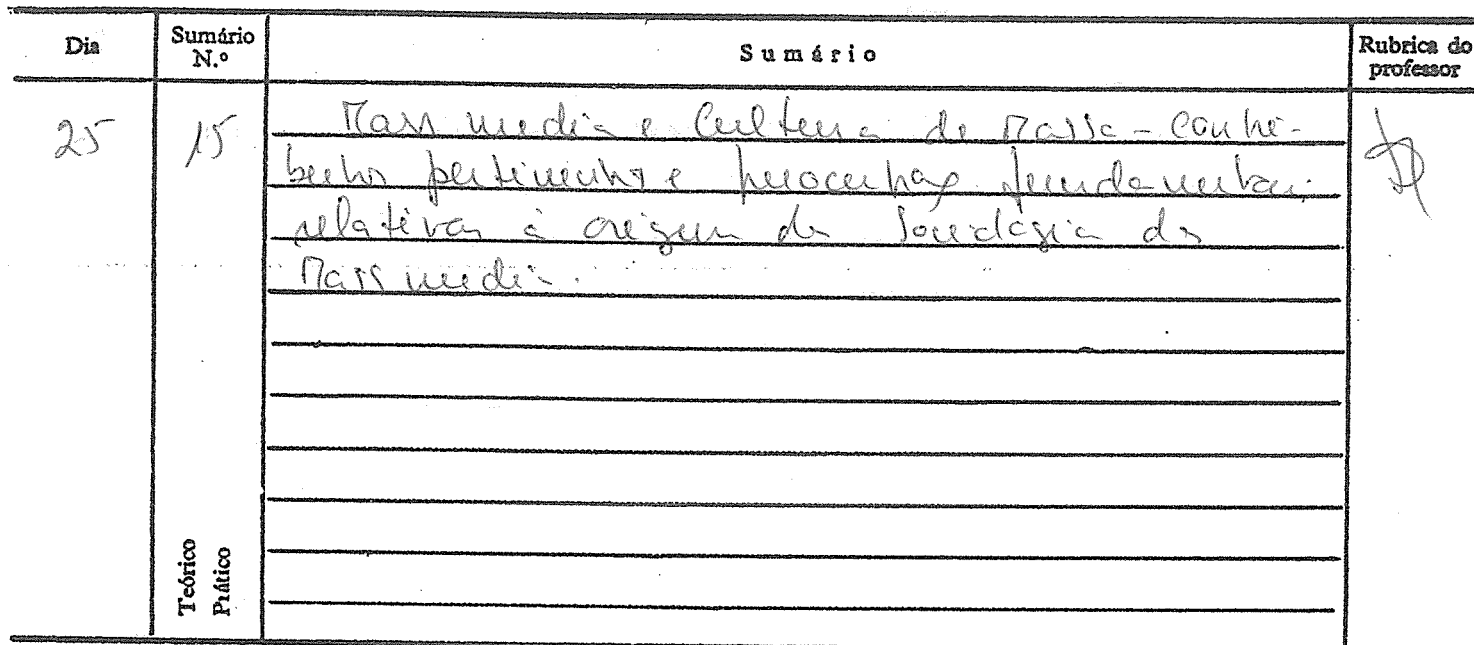 Dia
Sumário N.º
Sumário
Rubrica do professor
25
15
Mass media e Cultura de Massa - contri-
butos pertinentes e fundamentais
relativas à origem da Sociologia dos
Mass media.
Teórico
Prático